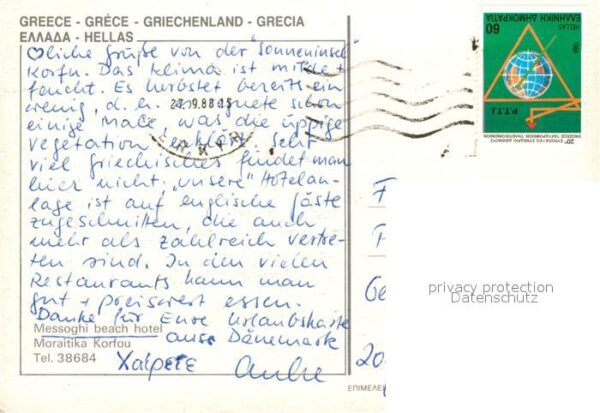 GREECE - GRÉCE - GRIECHENLAND - GRECIA
ΕΛΛΑΔΑ - HELLAS
♡liche Grüße von der "Sonneninsel"
Korfu. Das Klima ist milde +
feucht. Es herbstet bereits ein
wenig, d.h. es regnete schon
einige Male, was die üppige
Vegetation erklärt. Sehr
viel Griechisches findet man
hier nicht, "unsere" Hotelan-
lage ist auf englische Gäste
zugeschnitten, die auch
mehr als zahlreich vertre-
ten sind. In den vielen
Restaurants kann man
gut + preiswert essen.
Danke für Eure Urlaubskarte
aus Dänemark
Χαίρετε Anke
Messoghi beach hotel
Moraitika Korfou
Tel. 38684
27.9.88.15
ΕΛΛΗΝΙΚΗ ΔΗΜΟΚΡΑΤΙΑ
HELLAS
60
P.T.T.I.
F
F
Ge
20
ΕΠΙΜΕΛΕΙ
privacy protection
Datenschutz